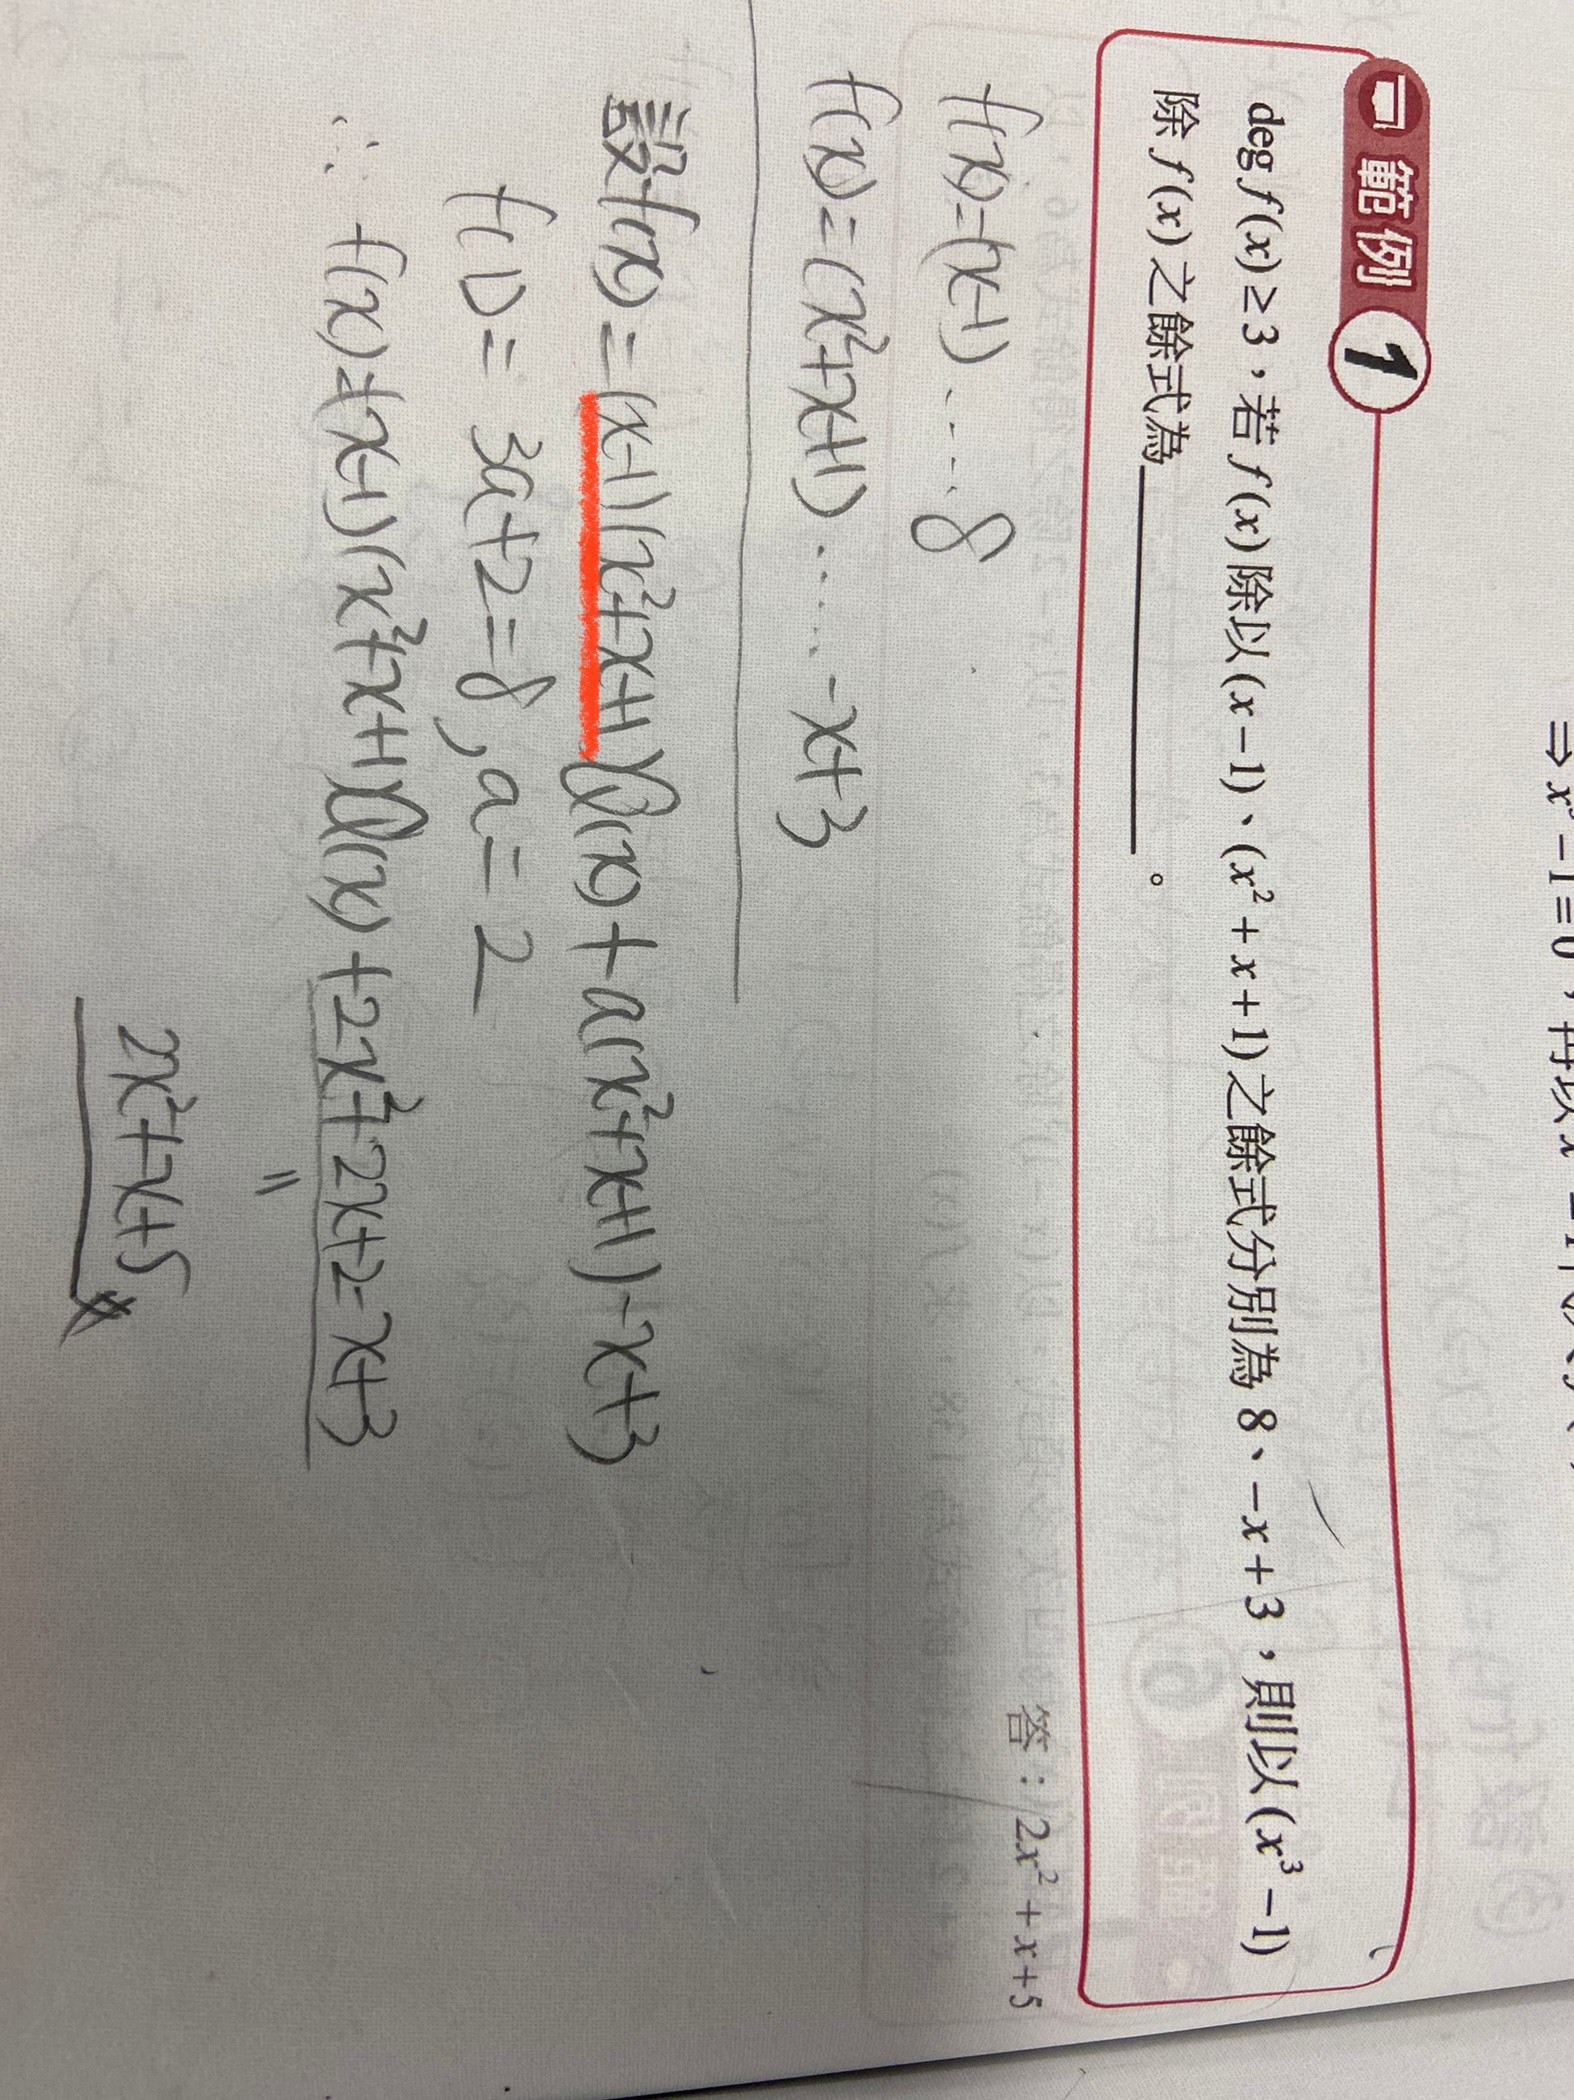 ⇒ x³-1=0,再以x
範例 1
deg f(x)≥3,若 f(x)除以(x-1)、(x²+x+1)之餘式分別為 8、-x+3,則以(x³-1)
除 f(x)之餘式為________。
答:2x²+x+5
f(x)=(x-1)....8
f(x)=(x²+x+1).....-x+3
設f(x)=(x-1)(x²+x+1)Q(x)+a(x²+x+1)-x+3
f(1)=3a+2=8,a=2
∴ f(x)=(x-1)(x²+x+1)Q(x)+2x²+2x+2-x+3
=
2x²+x+5